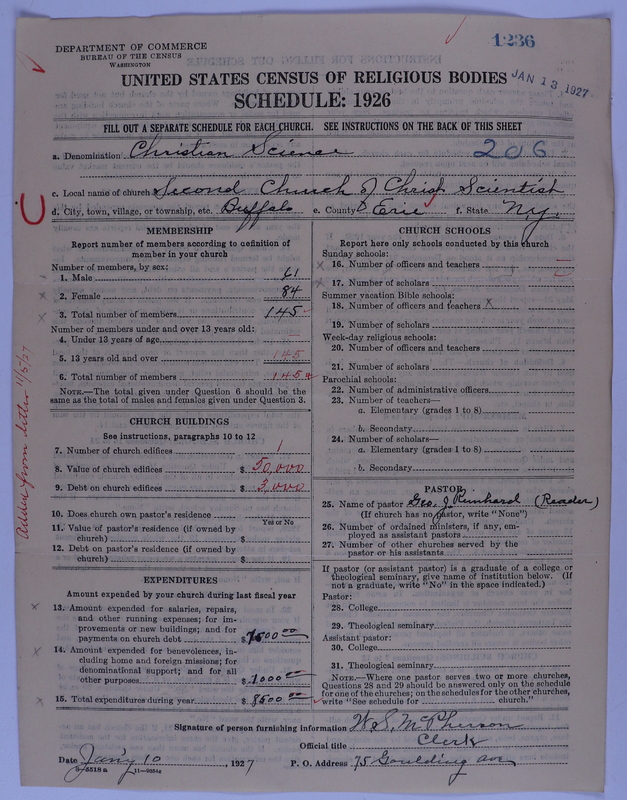 DEPARTMENT OF COMMERCE
BUREAU OF THE CENSUS
WASHINGTON
1236
UNITED STATES CENSUS OF RELIGIOUS BODIES
JAN 13 1927
SCHEDULE: 1926
FILL OUT A SEPARATE SCHEDULE FOR EACH CHURCH. SEE INSTRUCTIONS ON THE BACK OF THIS SHEET
a. Denomination Christian Science 206
c. Local name of church Second Church of Christ Scientist
d. City, town, village, or township, etc. Buffalo e. County Erie f. State N.Y.
MEMBERSHIP
Report number of members according to definition of
member in your church
Number of members, by sex:
1. Male 61
2. Female 84
3. Total number of members 145
Number of members under and over 13 years old:
4. Under 13 years of age
5. 13 years old and over 145
6. Total number of members 145
NOTE.—The total given under Question 6 should be the
same as the total of males and females given under Question 3.
CHURCH BUILDINGS
See instructions, paragraphs 10 to 12
7. Number of church edifices 1
8. Value of church edifices $ 50,000
9. Debt on church edifices $ 3,000
10. Does church own pastor's residence
Yes or No
11. Value of pastor's residence (if owned by
church) $
12. Debt on pastor's residence (if owned by
church) $
EXPENDITURES
Amount expended by your church during last fiscal year
13. Amount expended for salaries, repairs,
and other running expenses; for im-
provements or new buildings; and for
payments on church debt $ 7500 00
14. Amount expended for benevolences, in-
cluding home and foreign missions; for
denominational support; and for all
other purposes $ 1000 00
15. Total expenditures during year $ 8500 00
Added from letter 11/5/27
CHURCH SCHOOLS
Report here only schools conducted by this church
Sunday schools:
16. Number of officers and teachers
17. Number of scholars
Summer vacation Bible schools:
18. Number of officers and teachers X
19. Number of scholars
Week-day religious schools:
20. Number of officers and teachers
21. Number of scholars
Parochial schools:
22. Number of administrative officers
23. Number of teachers—
a. Elementary (grades 1 to 8)
b. Secondary
24. Number of scholars—
a. Elementary (grades 1 to 8)
b. Secondary
PASTOR
25. Name of pastor Geo. J. Reinhard (Reader)
(If church has no pastor, write "None")
26. Number of ordained ministers, if any, em-
ployed as assistant pastors
27. Number of other churches served by the
pastor or his assistants
If pastor (or assistant pastor) is a graduate of a college or
theological seminary, give name of institution below. (If
not a graduate, write "No" in the space indicated.)
Pastor:
28. College
29. Theological seminary
Assistant pastor:
30. College
31. Theological seminary
NOTE.—Where one pastor serves two or more churches,
Questions 28 and 29 should be answered only on the schedule
for one of the churches; on the schedules for the other churches,
write "See schedule for church."
Signature of person furnishing information W. S. McPherson
Official title Clerk
Date Jan'y 10, 1927 P. O. Address 75 Goulding Ave
8-5518a 11-9554